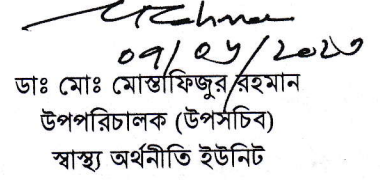 ডাঃ মোঃ মোস্তাফিজুর রহমান
উপপরিচালক (উপসচিব)
স্বাস্থ্য অর্থনীতি ইউনিট